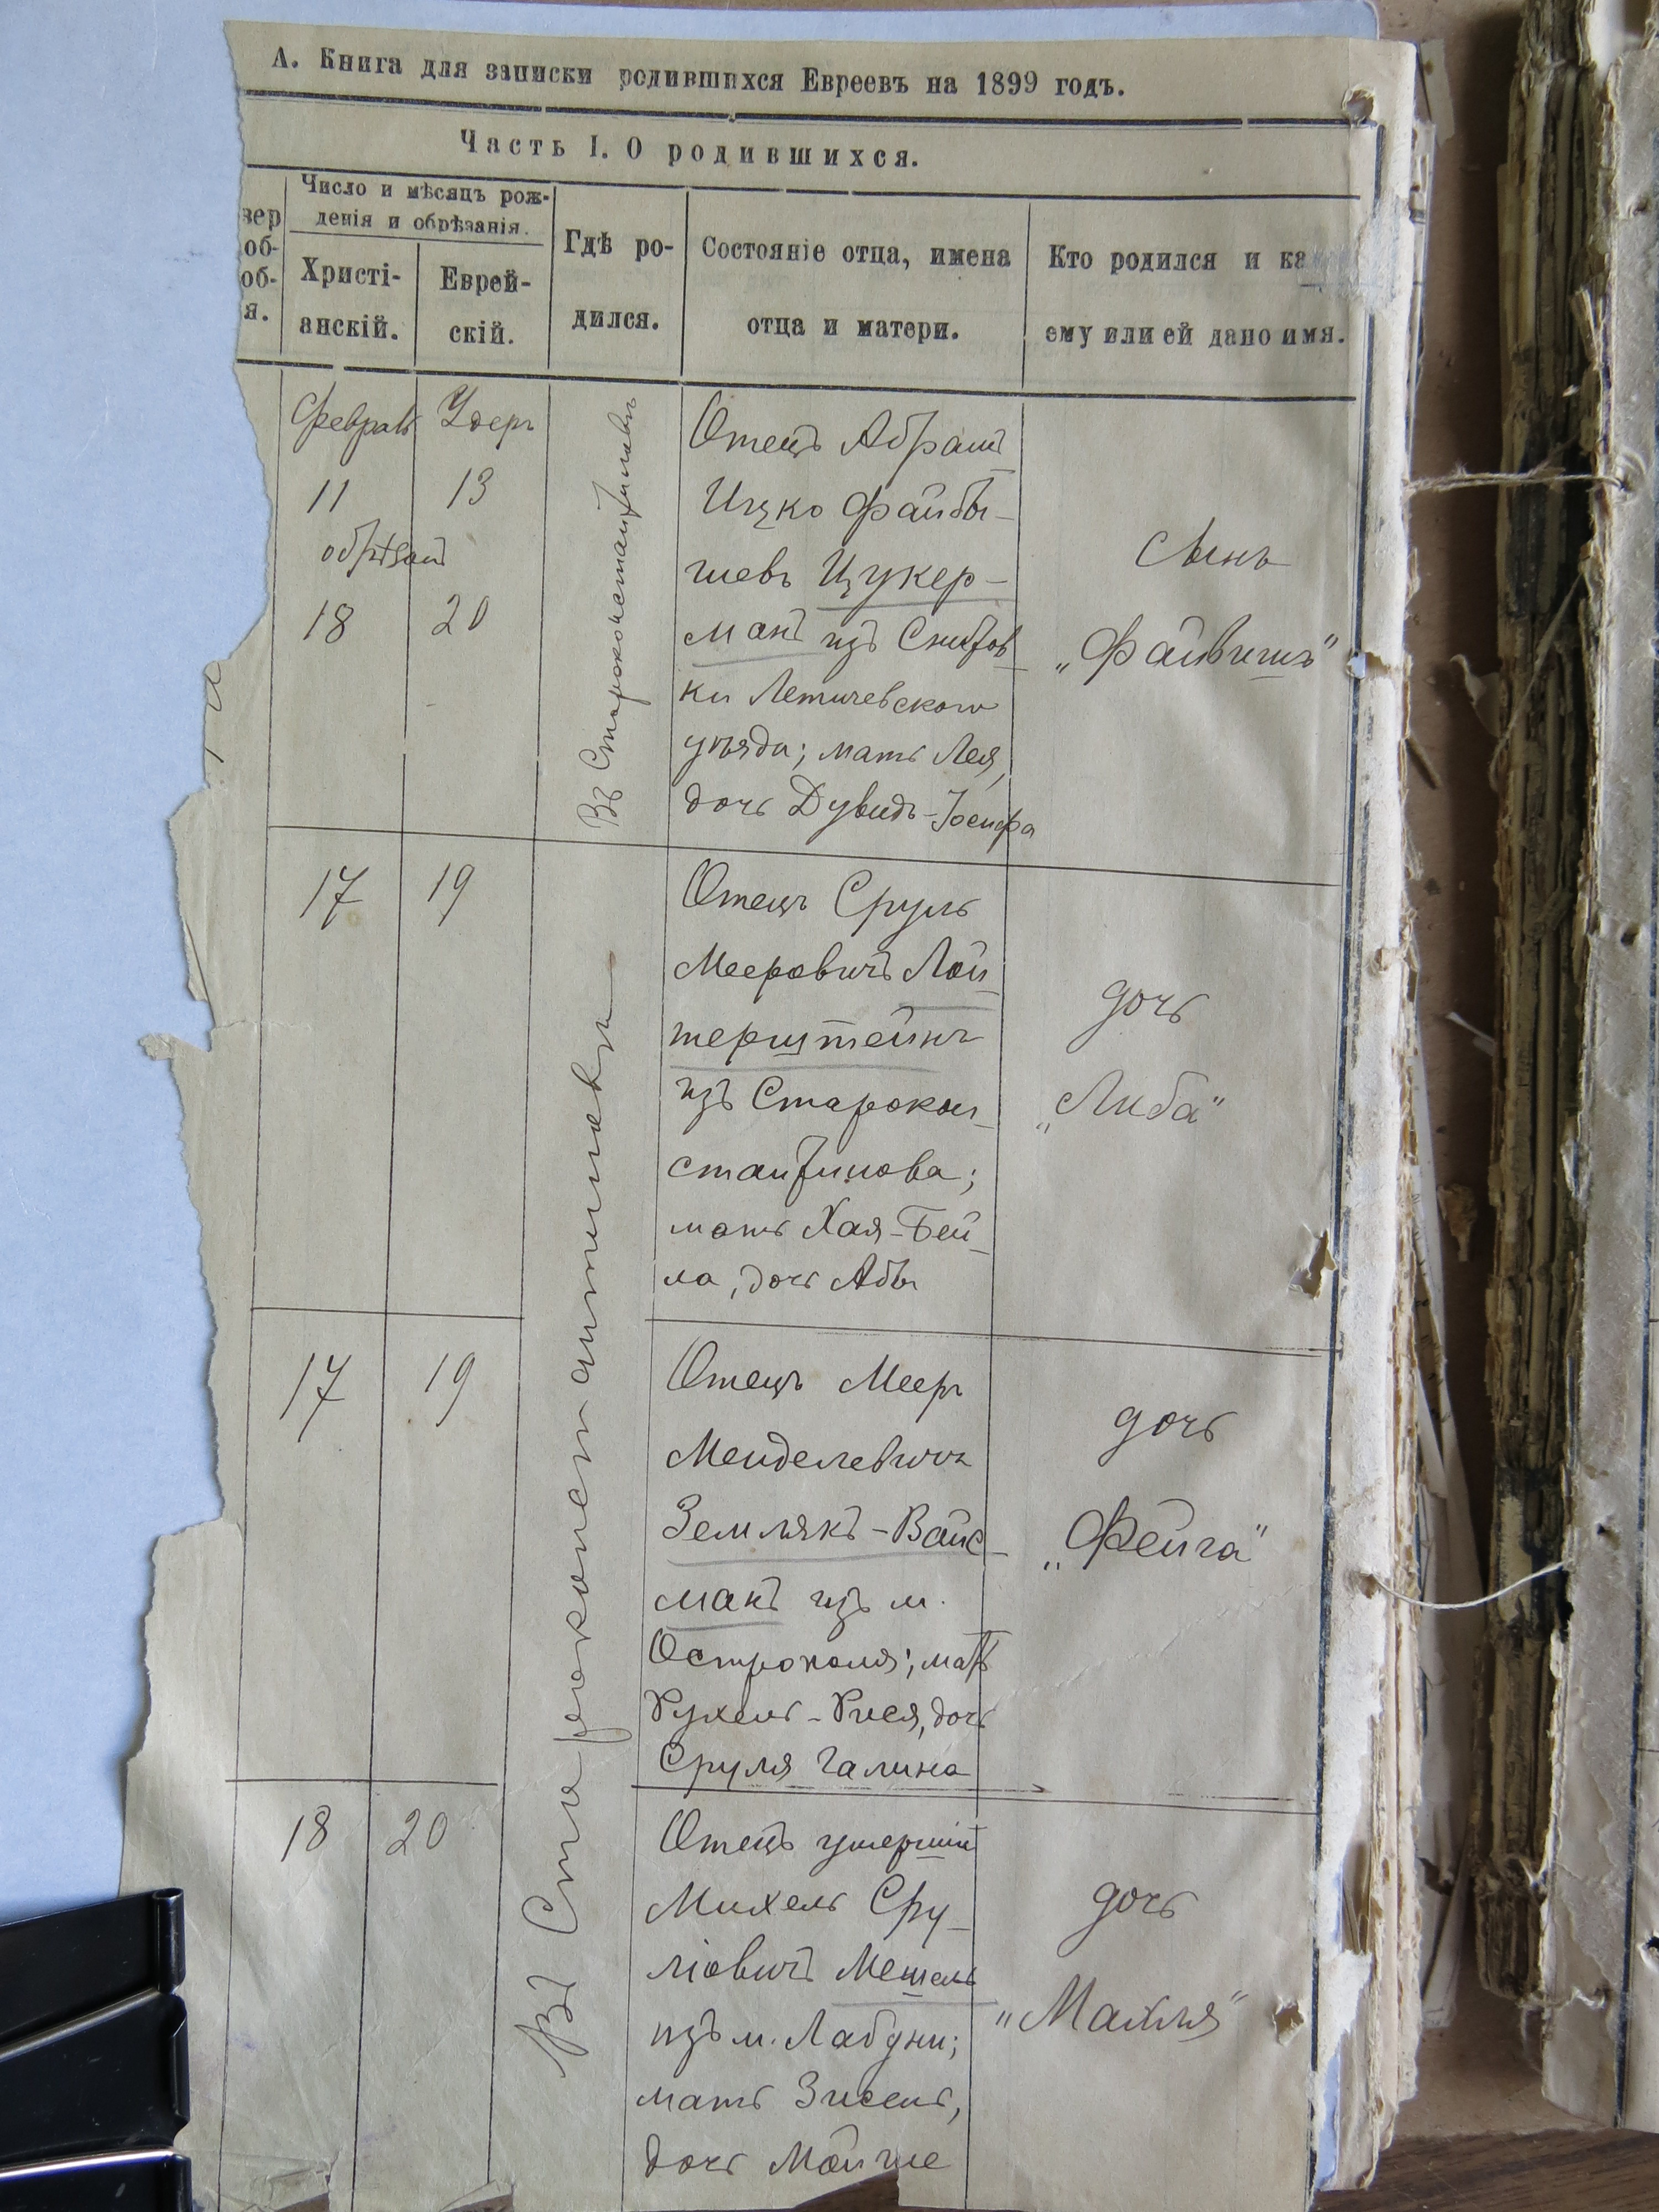 А. Книга для записки родившихся Евреевъ на 1899 годъ.
Часть I. О родившихся.
вер
об-
об-
я.
Число и мѣсяцъ рож-
денія и обрѣзанія.
Христі-
анскій.
Еврей-
скій.
Гдѣ ро-
дился.
Состояніе отца, имена
отца и матери.
Кто родился и ка
ему или ей дано имя.
Февраль
11
обрѣзан
18
Удеръ
13
20
Въ Староконстантиновѣ
Отецъ Абрамъ
Ицко Файбы-
шевъ Цукер-
манъ изъ Снитов
ки Летичевского
уѣзда; мать Лея,
дочь Дувидъ-Іосифа
Сынъ
„Файвишъ"
17
19
Отецъ Сруль
Мееровичъ Лой-
терштейнъ
изъ Старокон-
стантинова;
мать Хая-Бей-
ла, дочь Абы
дочь
„Либа"
17
19
Въ Староконстантиновѣ
Отецъ Мееръ
Менделевичъ
Землякъ-Вайс-
манъ изъ м.
Острополя; мать
Рухель-Рися, дочь
Сруля Галина
дочь
„Фейга"
18
20
Отецъ умершій
Михель Сру-
ліовичъ Мешель
изъ м. Лабуни;
мать Зисель,
дочь Мойше
дочь
„Махля"